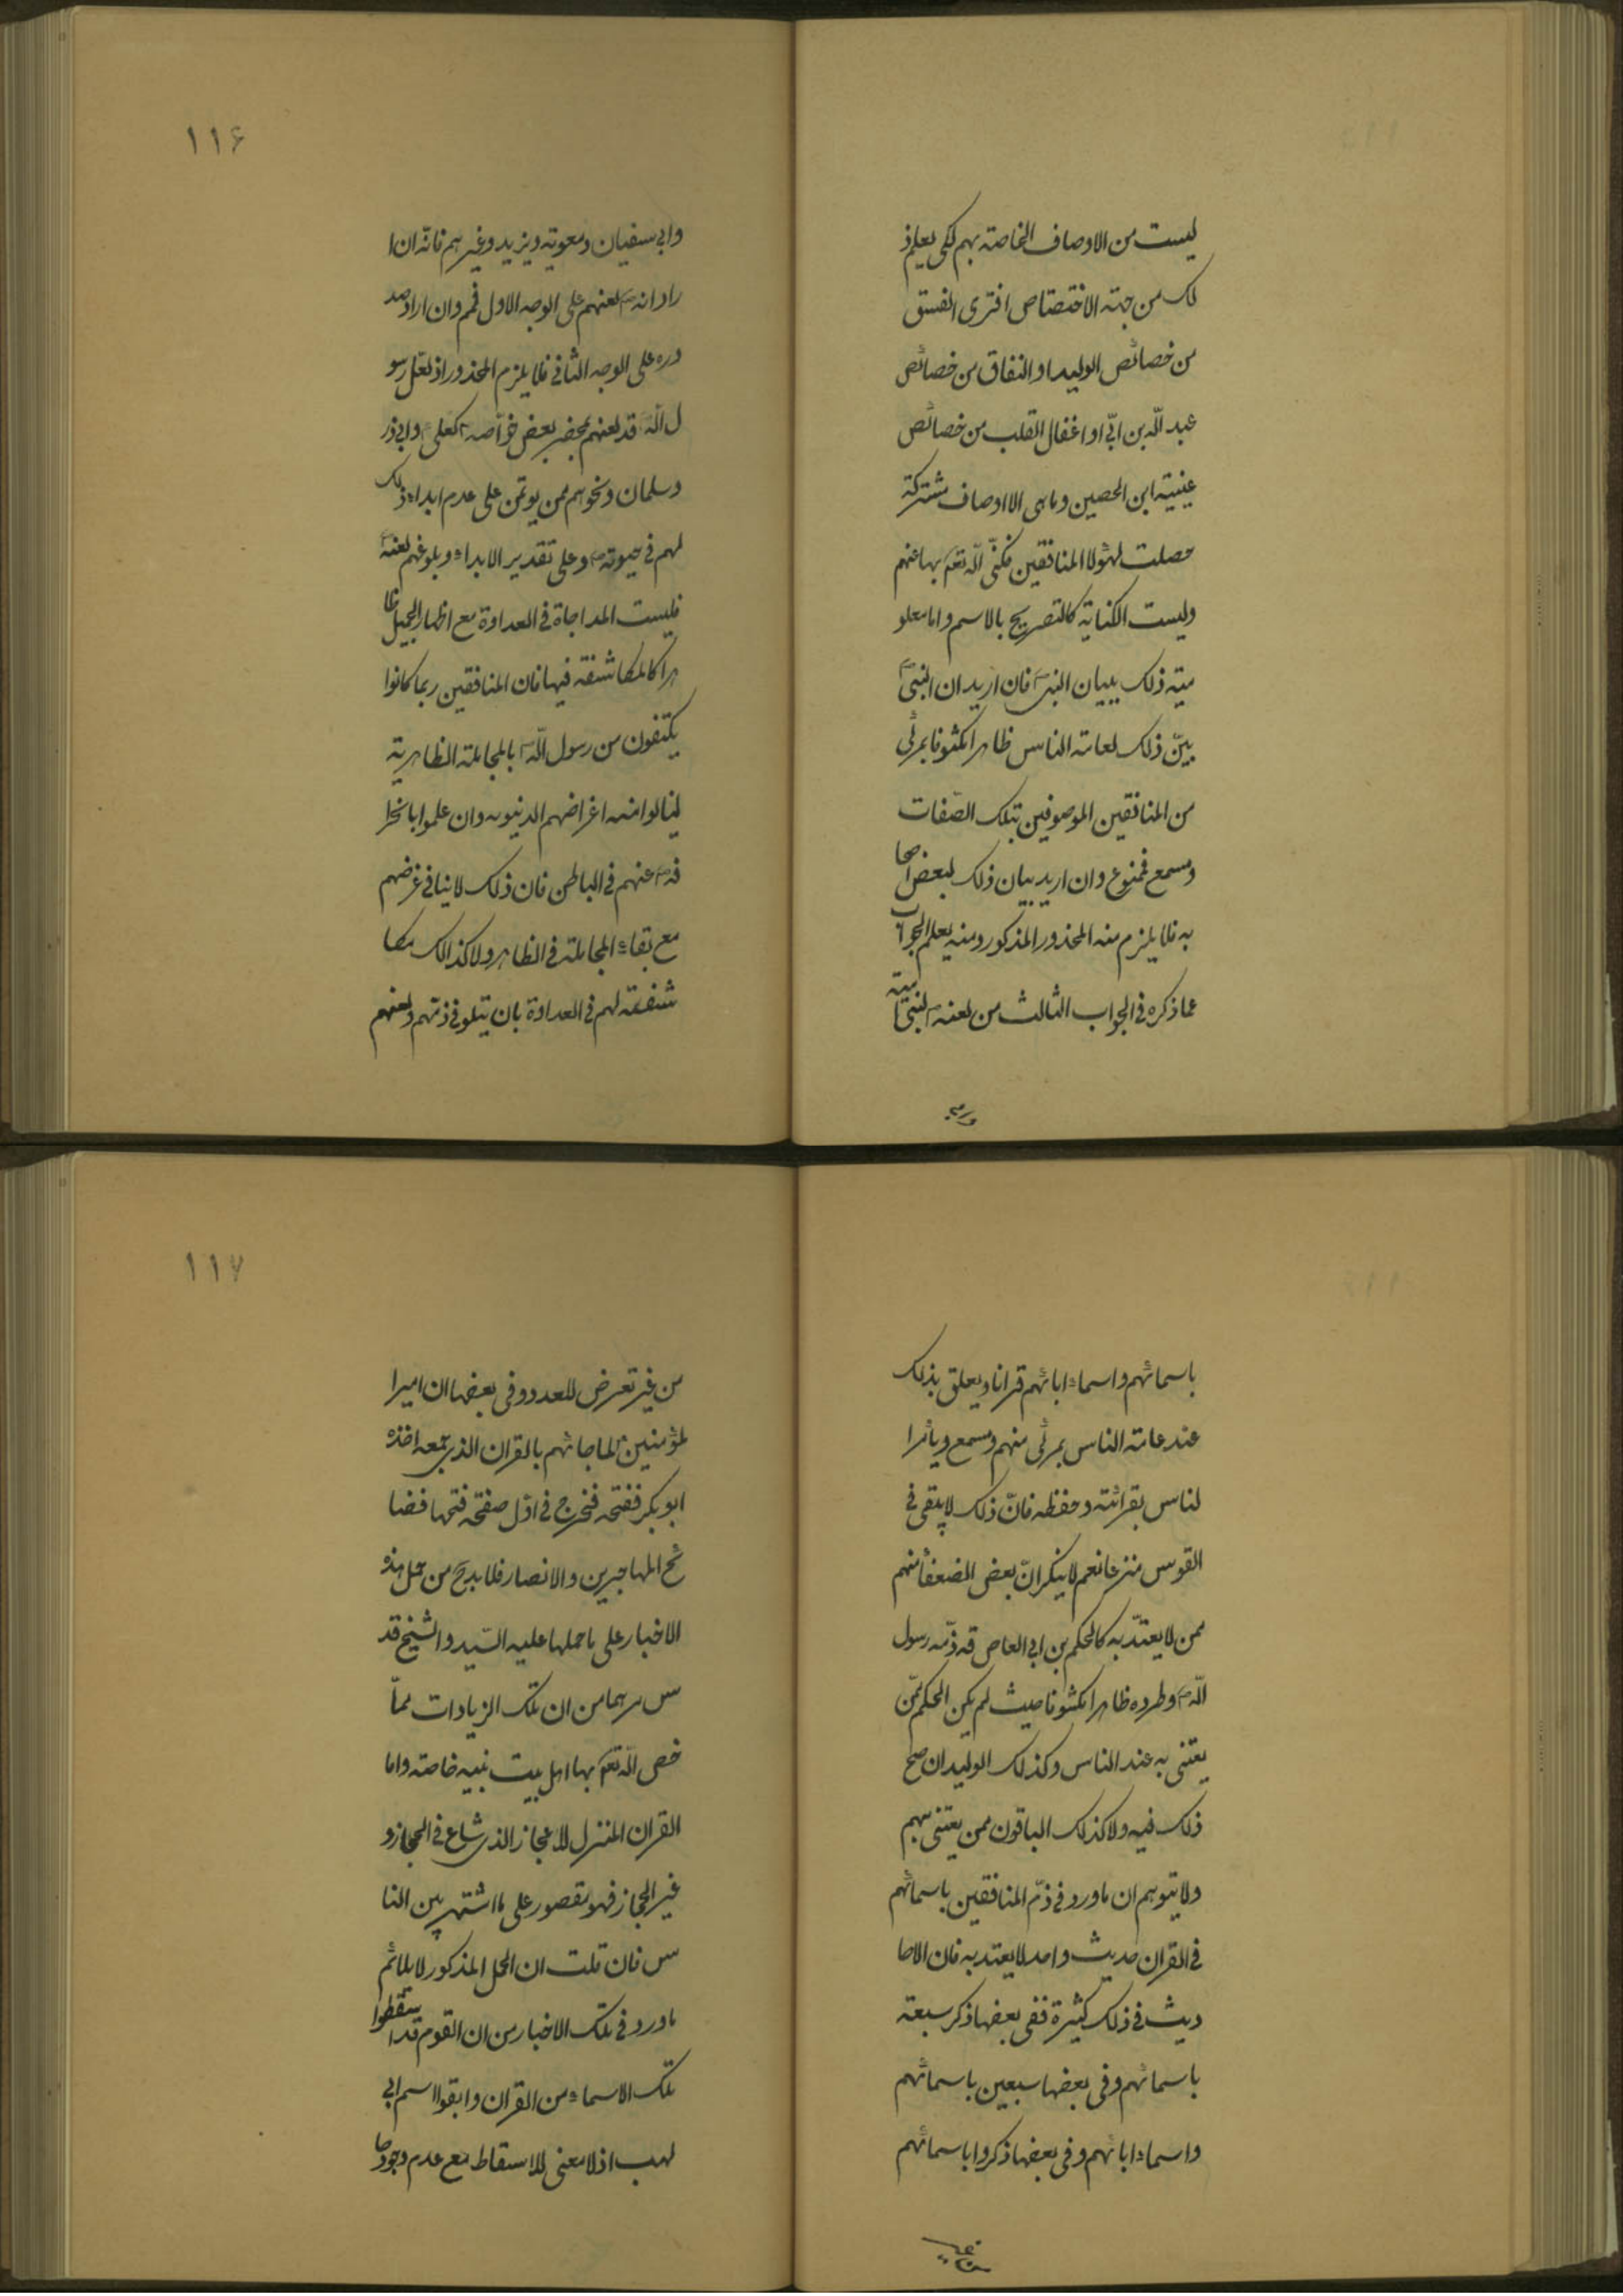 ليست من الاوصاف الخاصة بهم لكى يعلم ذ
لك من جهة الاختصاص افترى الفسق
من خصائص الوليد او النفاق من خصائص
عبد الله بن ابىّ او اغفال القلب من خصائص
عيينة ابن الحصين وما هى الا اوصاف مشتركة
حصلت لهؤلا المنافقين فكنّى الله تعم بها عنهم
وليست الكناية كالتصريح بالاسم واما معلو
مية ذلك ببيان النبى ص فان اريد ان النبى ص
بيّن ذلك لعامة الناس ظاهرا مكشوفا بمرئى
من المنافقين الموصوفين بتلك الصّفات
ومسمع فممنوع وان اريد بيان ذلك لبعض اصحا
به فلا يلزم منه المحذور المذكور ومنه يعلم الجواب
عما ذكره فى الجواب الثالث من لعنه ص لبنى امية
ورى
١١۶
وابى سفيان ومعوية ويزيد وغيرهم فانّه ان ا
راد انه ص لعنهم على الوجه الاول فمم وان اراد صد
وره على الوجه الثانى فلا يلزم المحذور اذ لعّل رسو
ل الله ص قد لعنهم بمحضر بعض خوآصه كعلى ع وابى ذر
وسلمان ونحوهم ممن يوتمن على عدم ابداء ذلك
لهم فى حيوته ص وعلى تقدير الابداء وبلوغهم لعنه ص
فليست المداجاة فى العداوة مع اظهار الجميل ظا
هرا كالمكاشفة فيها فان المنافقين ربما كانوا
يكتفون من رسول الله ص بالمجاملة الظاهرية
لينالوا منه اغراضهم الدنيويه وان علموا بانحرا
فه ص عنهم فى الباطن فان ذلك لا ينافى غرضهم
مع بقاء المجاملة فى الظاهر ولا كذالك مكا
شفته لهم فى العداوة بان يتلو فى ذمّهم ولعنهم
باسمائهم واسماء ابائهم قرانا ويعلق بذلك
عند عامة الناس بمرئى منهم ومسمع ويأمر ا
لناس بقرائته وحفظه فانّ ذلك لا يبقى فى
القوس منزعا نعم لا ينكر انّ بعض الضعفأ منهم
ممن لا يعتدّ به كالحكم بن ابى العاص قد ذمّه رسول
الله ص وطرده ظاهرا مكشوفا حيث لم يكن الحكم ممّن
يعتنى به عند الناس وكذلك الوليد ان صح
ذلك فيه ولا كذلك الباقون ممن يعتنى بهم
ولا يتوهم ان ما ورد فى ذمّ المنافقين باسمائهم
فى القران حديث واحد لا يعتد به فان الاحا
ديث فى ذلك كثيرة ففى بعضها ذكر سبعة
باسمائهم وفى بعضها سبعين باسمائهم
واسماء ابائهم وفى بعضها ذكروا باسمائهم
من غير
١١٧
من غير تعرض للعدد وفى بعضها ان امير ا
لمؤمنين ع لما جائهم بالقران الذى جمعه اخذه
ابو بكر ففتحه فخرج فى اوّل صفحة فتحها فضا
ئح المهاجرين والانصار فلا بدّ ح من حمل هذه
الاخبار على ما حملها عليه السّيد والشيخ قد
س سرهما من ان تلك الزيادات ممّا
خص الله تعم بها اهل بيت نبيه خاصة واما
القران المنزل للاعجاز الذى شاع فى الحجاز و
غير الحجاز فهو مقصور على ما اشتهر بين النا
س فان قلت ان الحمل المذكور لا يلائم
ما ورد فى تلك الاخبار من ان القوم قد اسقطوا
تلك الاسماء من القران وابقوا اسم ابى
لهب اذ لا معنى للاسقاط مع عدم وجودها